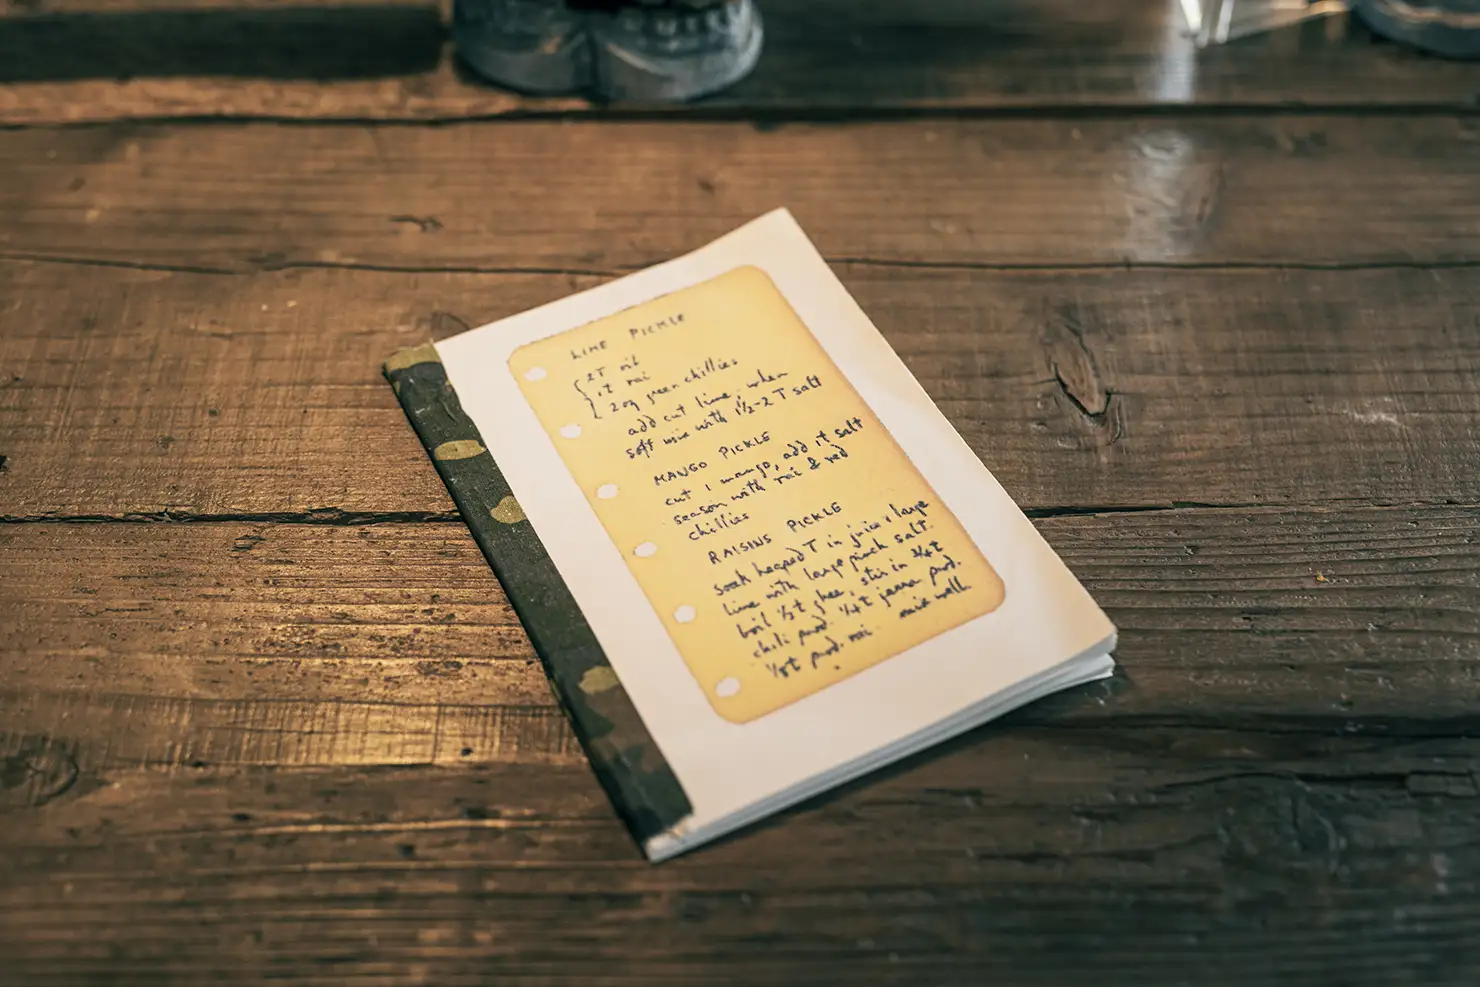 LIME PICKLE
2T oil
1t rai
2 og green chillies
add cut lime, when
soft mix with 1½-2 T salt
MANGO PICKLE
cut 1 mango, add 1t salt
season with rai & red
chillies
RAISINS PICKLE
soak heaped T in juice 1 large
lime with large pinch salt.
boil ½t ghee, stir in ¾t
chili pwd. ¼t jeera pwd.
⅛t pwd. rai. mix well